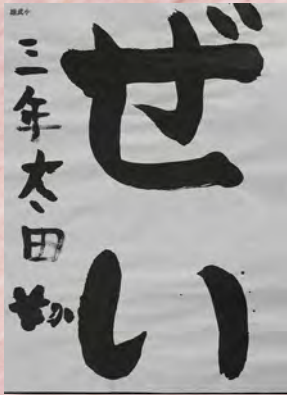 ぜい
三年太田